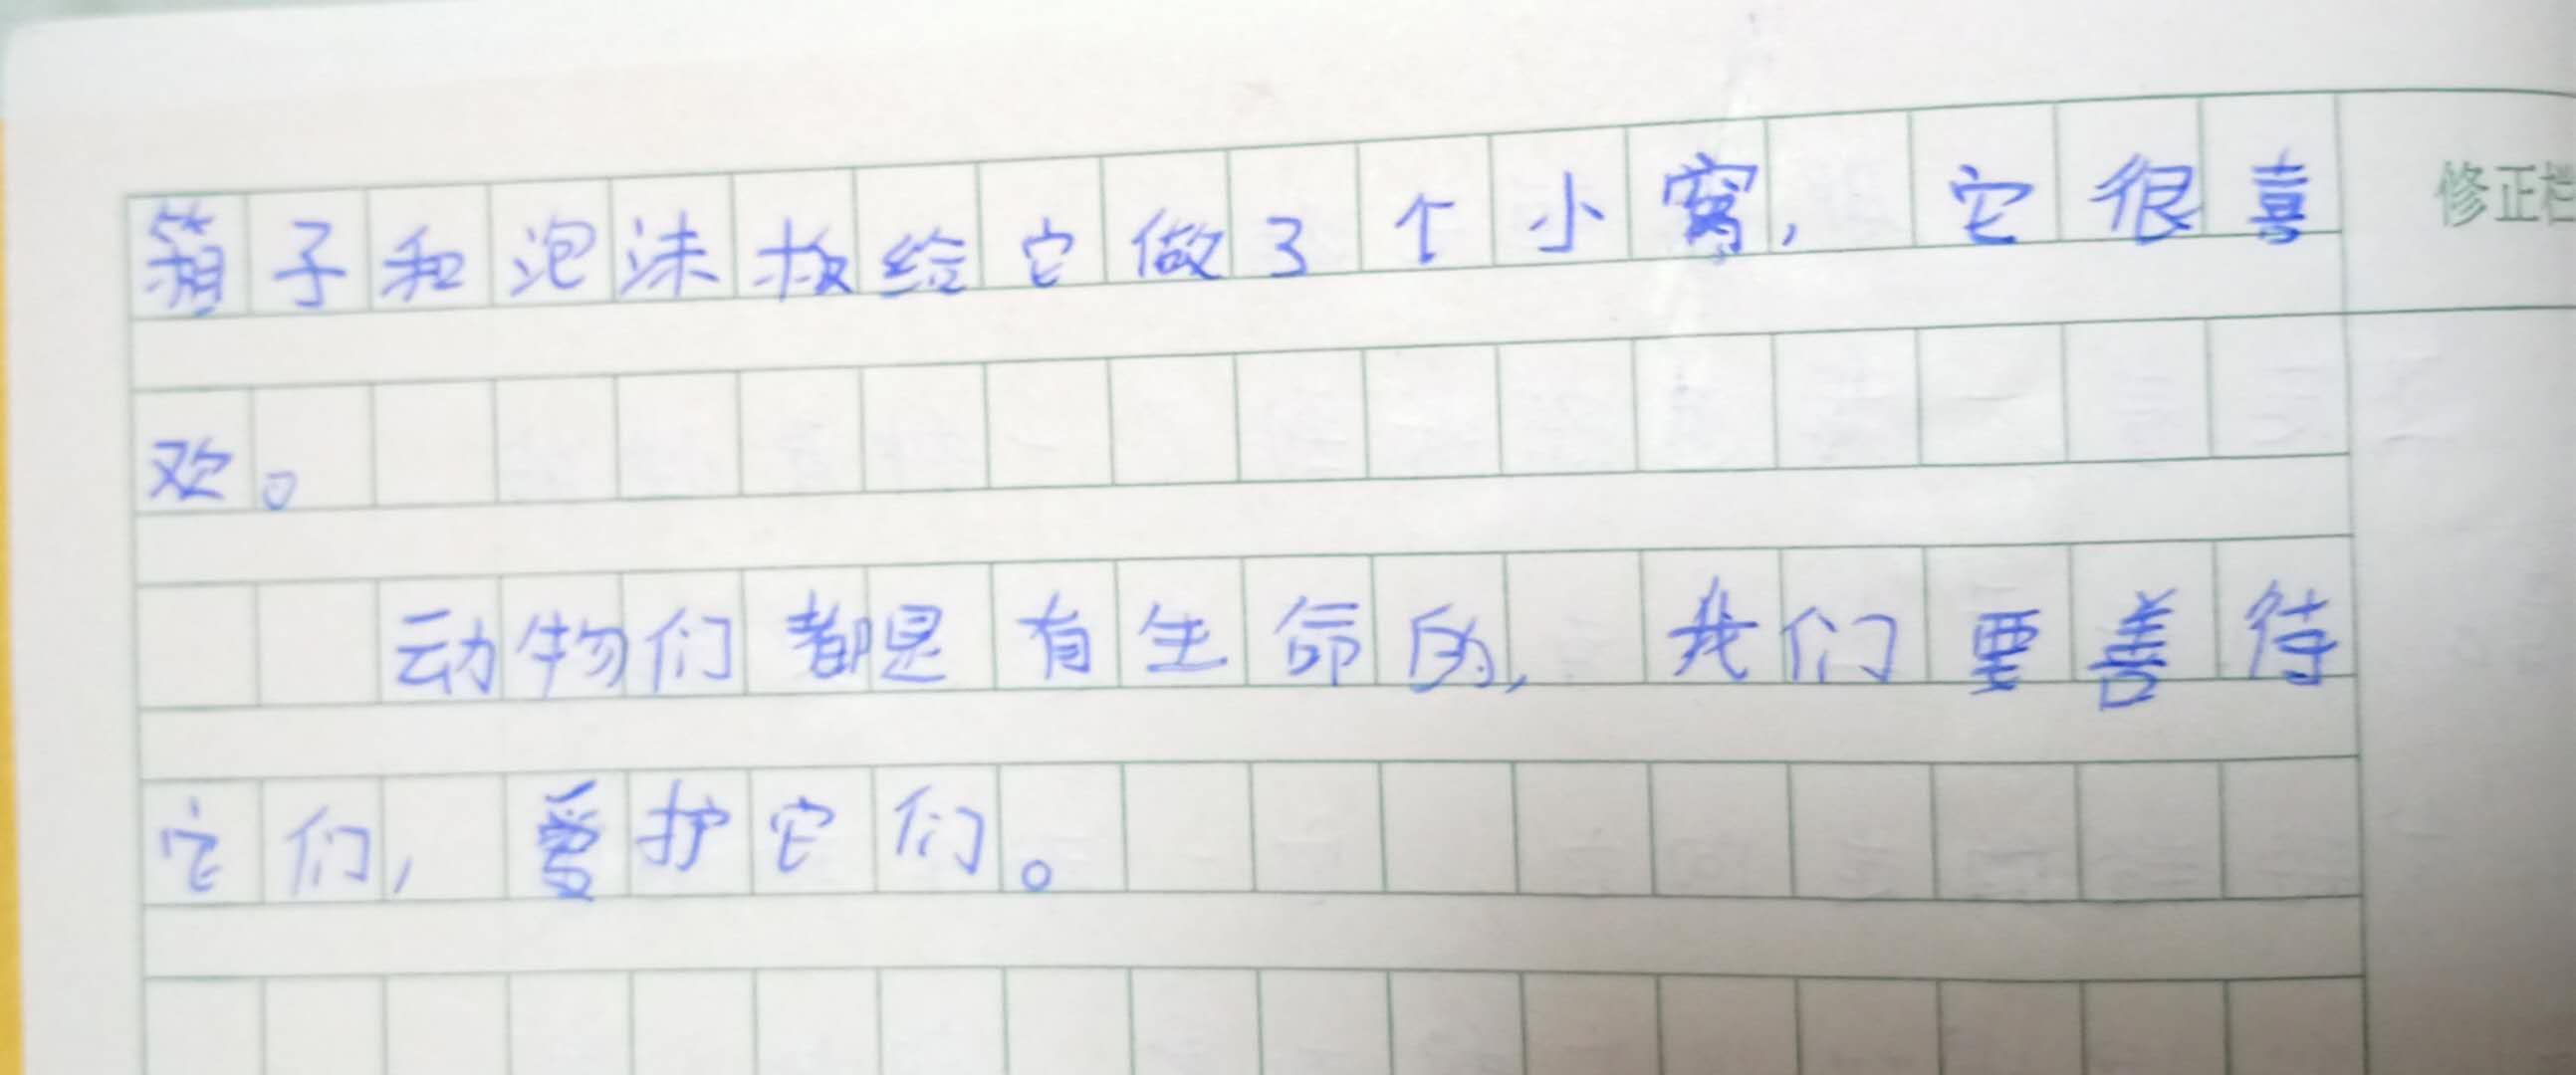 箱子和泡沫板给它做了个小窝，它很喜
欢。
动物们都是有生命的，我们要善待
它们，爱护它们。
修正栏